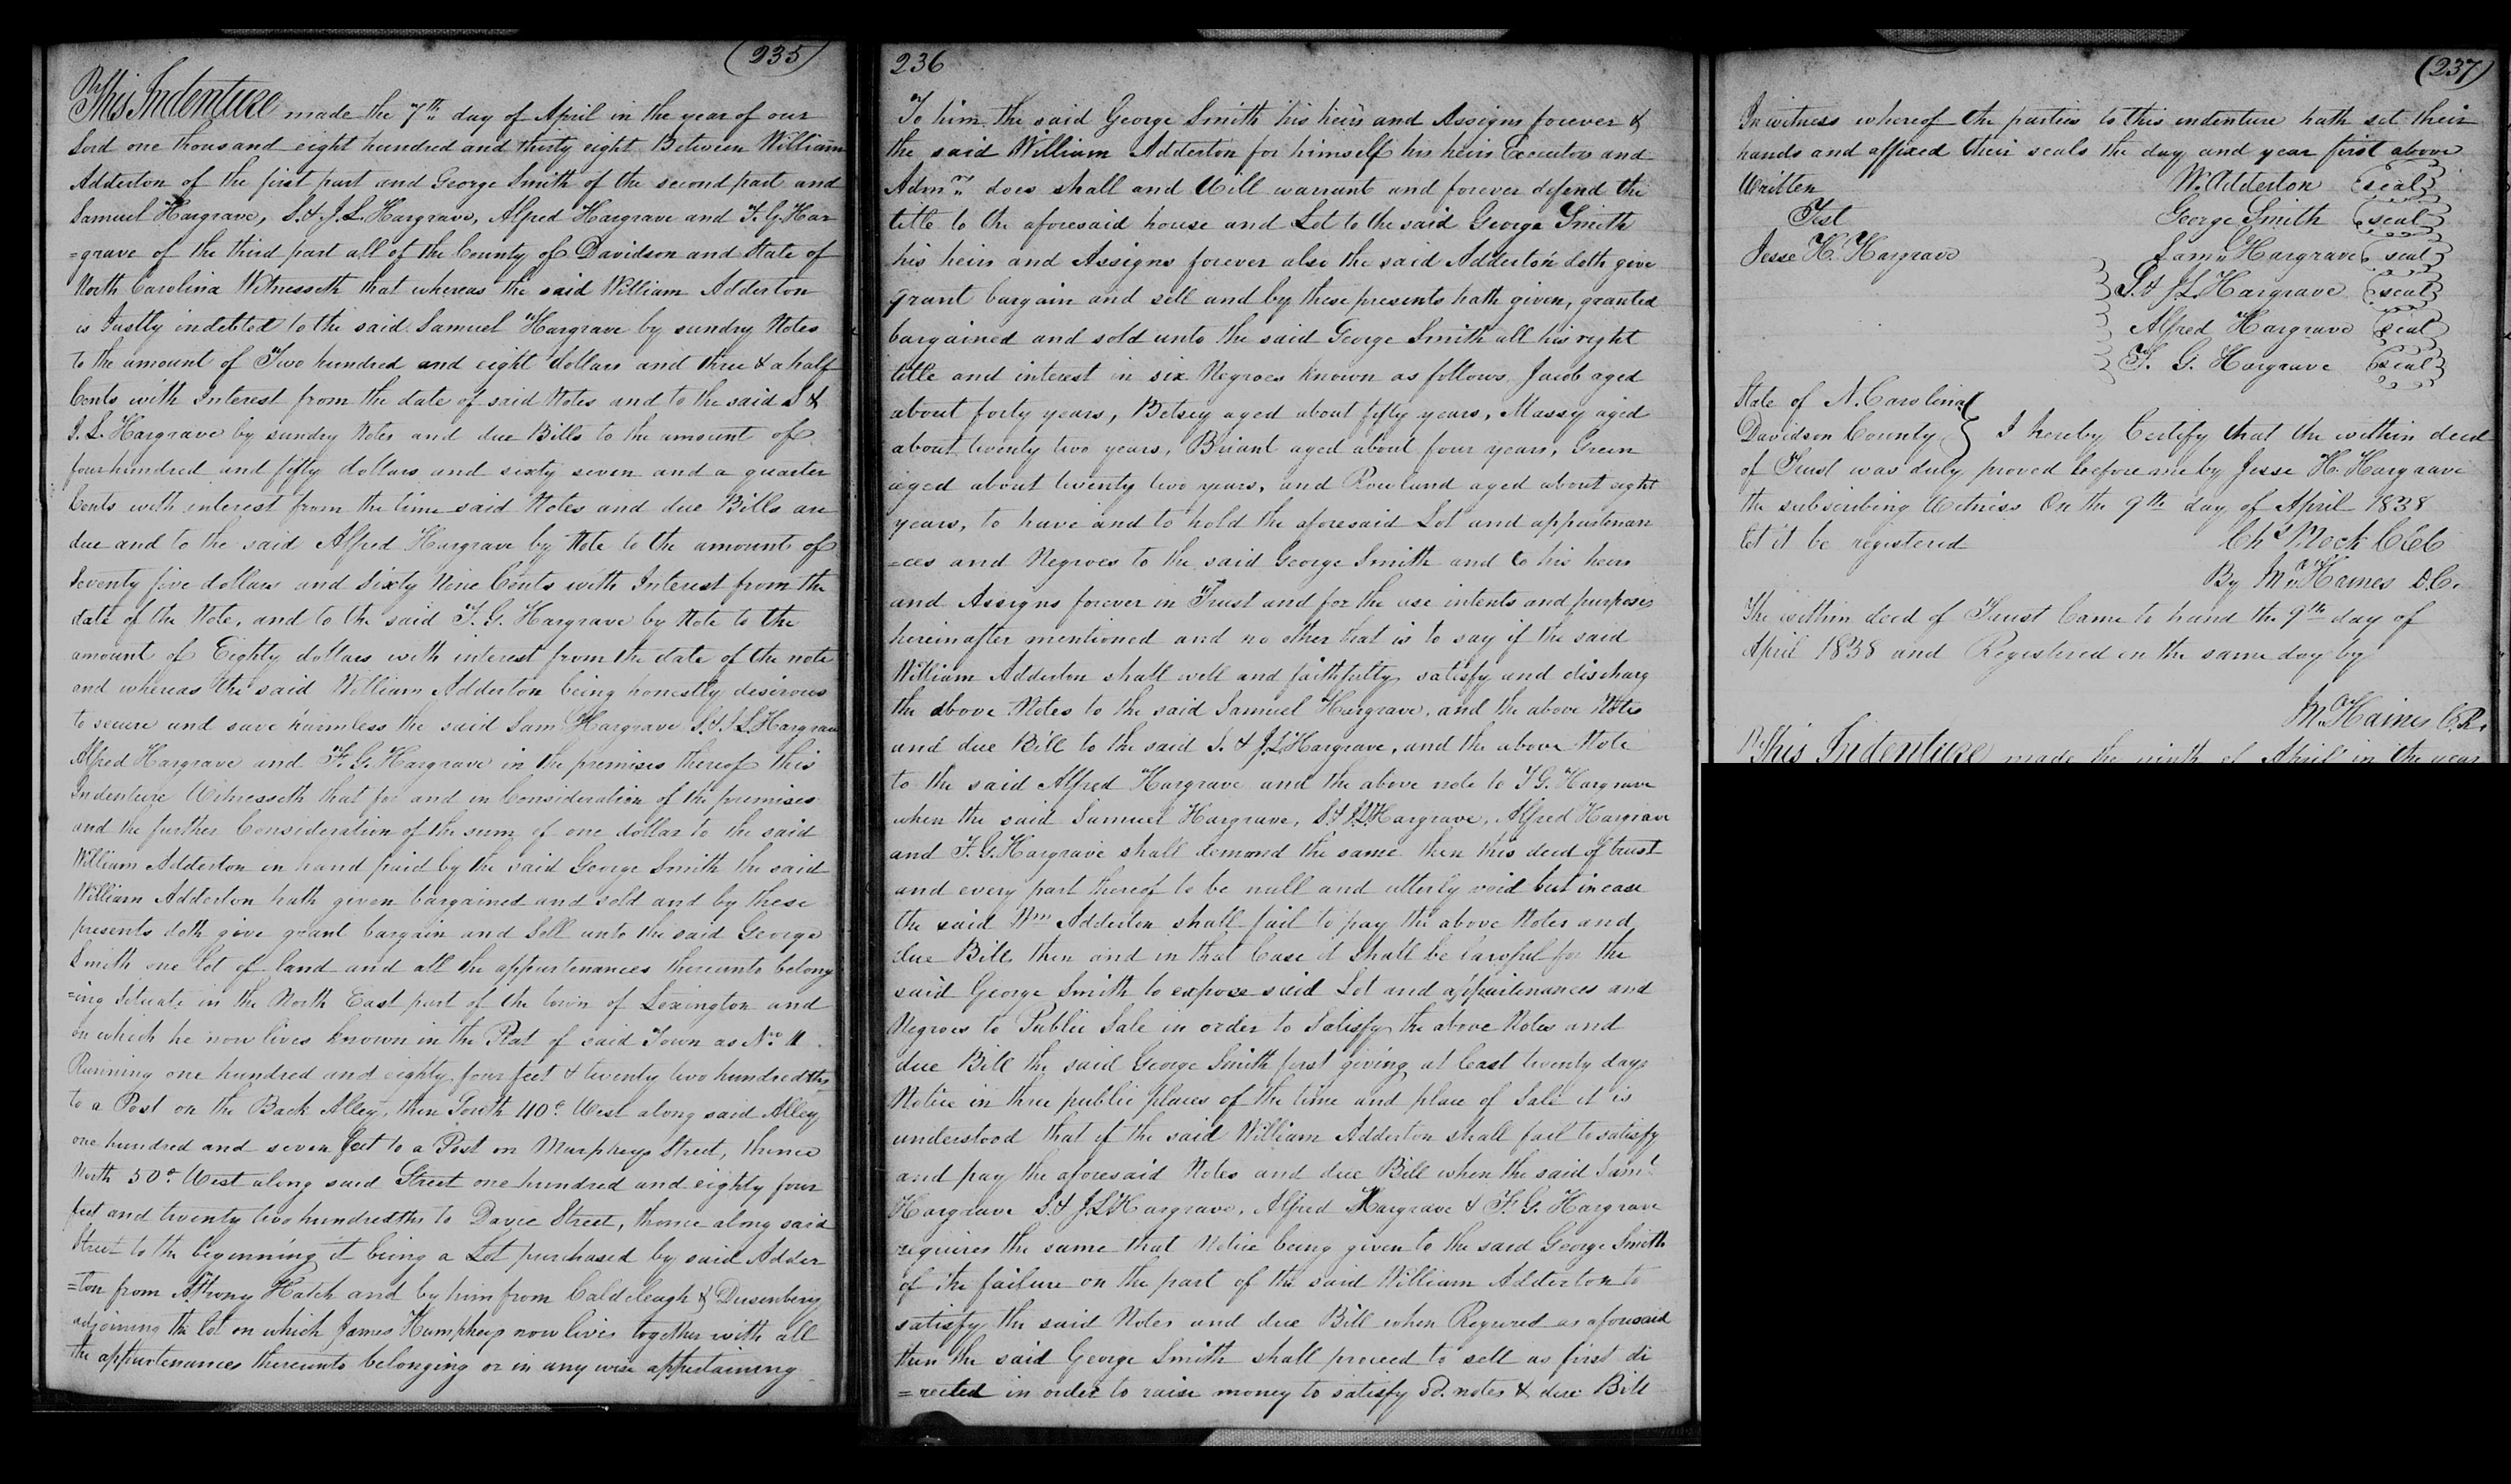 (235)
This Indenture made the 7th day of April in the year of our
Lord one thousand eight hundred and thirty eight Between William
Adderton of the first part and George Smith of the second part and
Samuel Hargrave, S. & J. L. Hargrave, Alfred Hargrave and F. G. Har
=grave of the third part all of the County of Davidson and State of
North Carolina Witnesseth that whereas the said William Adderton
is Justly indebted to the said Samuel Hargrave by sundry Notes
to the amount of Two hundred and eight dollars and three & a half
Cents with Interest from the date of said Notes and to the said S &
J. L. Hargrave by sundry Notes and due Bills to the amount of
four hundred and fifty dollars and sixty seven and a quarter
Cents with interest from the time said Notes and due Bills are
due and to the said Alfred Hargrave by Note to the amount of
Seventy five dollars and Sixty Nine Cents with Interest from the
date of the Note, and to the said F. G. Hargrave by Note to the
amount of Eighty dollars with interest from the date of the note
and whereas the said William Adderton being honestly desirous
to secure and save harmless the said Sam Hargrave S. & J L Hargrave
Alfred Hargrave and F. G. Hargrave in the premises thereof this
Indenture Witnesseth that for and in Consideration of the premises
and the further Consideration of the sum of one dollar to the said
William Adderton in hand paid by the said George Smith the said
William Adderton hath given bargained and sold and by these
presents doth give grant bargain and Sell unto the said George
Smith one lot of land and all the appurtenances thereunto belong
=ing Situate in the North East part of the town of Lexington and
on which he now lives known in the Plat of said Town as No. 11
Running one hundred and eighty four feet & twenty two hundredths
to a Post on the Back Alley, then South 40° West along said Alley
one hundred and seven feet to a Post on Murpheys Street, thence
North 50° West along said Street one hundred and eighty four
feet and twenty two hundredths to Davie Street, thence along said
Street to the beginning it being a Lot purchased by said Adder
=ton from Anthony Hatch and by him from Caldcleugh & Dusenbery
adjoining the lot on which James Humpheys now lives together with all
the appurtenances thereunto belonging or in any wise appertaining
236
To him the said George Smith his heirs and Assigns forever &
the said William Adderton for himself his heirs Executors and
Admrs does shall and Will warrant and forever defend the
title to the aforesaid house and Lot to the said George Smith
his heirs and Assigns forever also the said Adderton doth give
grant bargain and sell and by these presents hath given, granted
bargained and sold unto the said George Smith all his right
title and interest in six Negroes known as follows Jacob aged
about forty years, Betsey aged about fifty years, Massy aged
about twenty two years, Briant aged about four years, Green
aged about twenty two years, and Rowland aged about eight
years, to have and to hold the aforesaid Lot and appurtenan
=ces and Negroes to the said George Smith and to his heirs
and Assigns forever in Trust and for the use intents and purposes
hereinafter mentioned and no other that is to say if the said
William Adderton shall well and faithfully satisfy and discharg
the above Notes to the said Samuel Hargrave, and the above Notes
and due Bill to the said S. & J. L. Hargrave, and the above Note
to the said Alfred Hargrave and the above note to F G. Hargrave
when the said Samuel Hargrave, S. & J. L. Hargrave, Alfred Hargrave
and F. G. Hargrave shall demand the same then this deed of trust
and every part thereof to be null and utterly void but in case
the said Wm Adderton shall fail to pay the above Notes and
due Bill then and in that Case it shall be lawful for the
said George Smith to expose said Lot and appurtenances and
Negroes to Public Sale in order to Satisfy the above Notes and
due Bill the said George Smith first giving at least twenty days
Notice in three public places of the time and place of Sale it is
understood that if the said William Adderton shall fail to satisfy
and pay the aforesaid Notes and due Bill when the said Saml
Hargrave S. & J. L. Hargrave, Alfred Hargrave & F. G. Hargrave
requires the same that Notice being given to the said George Smith
of the failure on the part of the said William Adderton to
satisfy the said Notes and due Bill when Requred as aforesaid
then the said George Smith shall proceed to sell as first di
=rected in order to raise money to satisfy Sd. notes & due Bill
(237)
In witness whereof the parties to this indenture hath set their
hands and affixed their seals the day and year first above
Written W. Adderton (seal)
Test George Smith (seal)
Jesse H. Hargrave Saml Hargrave (seal)
S. & J. L. Hargrave (seal)
Alfred Hargrave (seal)
F. G. Hargrave (seal)
State of N. Carolina
Davidson County } I hereby Certify that the within deed
of Trust was duly proved before me by Jesse H. Hargrave
the subscribing Witness On the 9th day of April 1838
let it be registered Chs Mock CCC
By M. Haines D.C.
The within deed of Trust Came to hand the 9th day of
April 1838 and Registered on the same day by
M. Haines C.R.
This Indenture made the ninth of April in the year